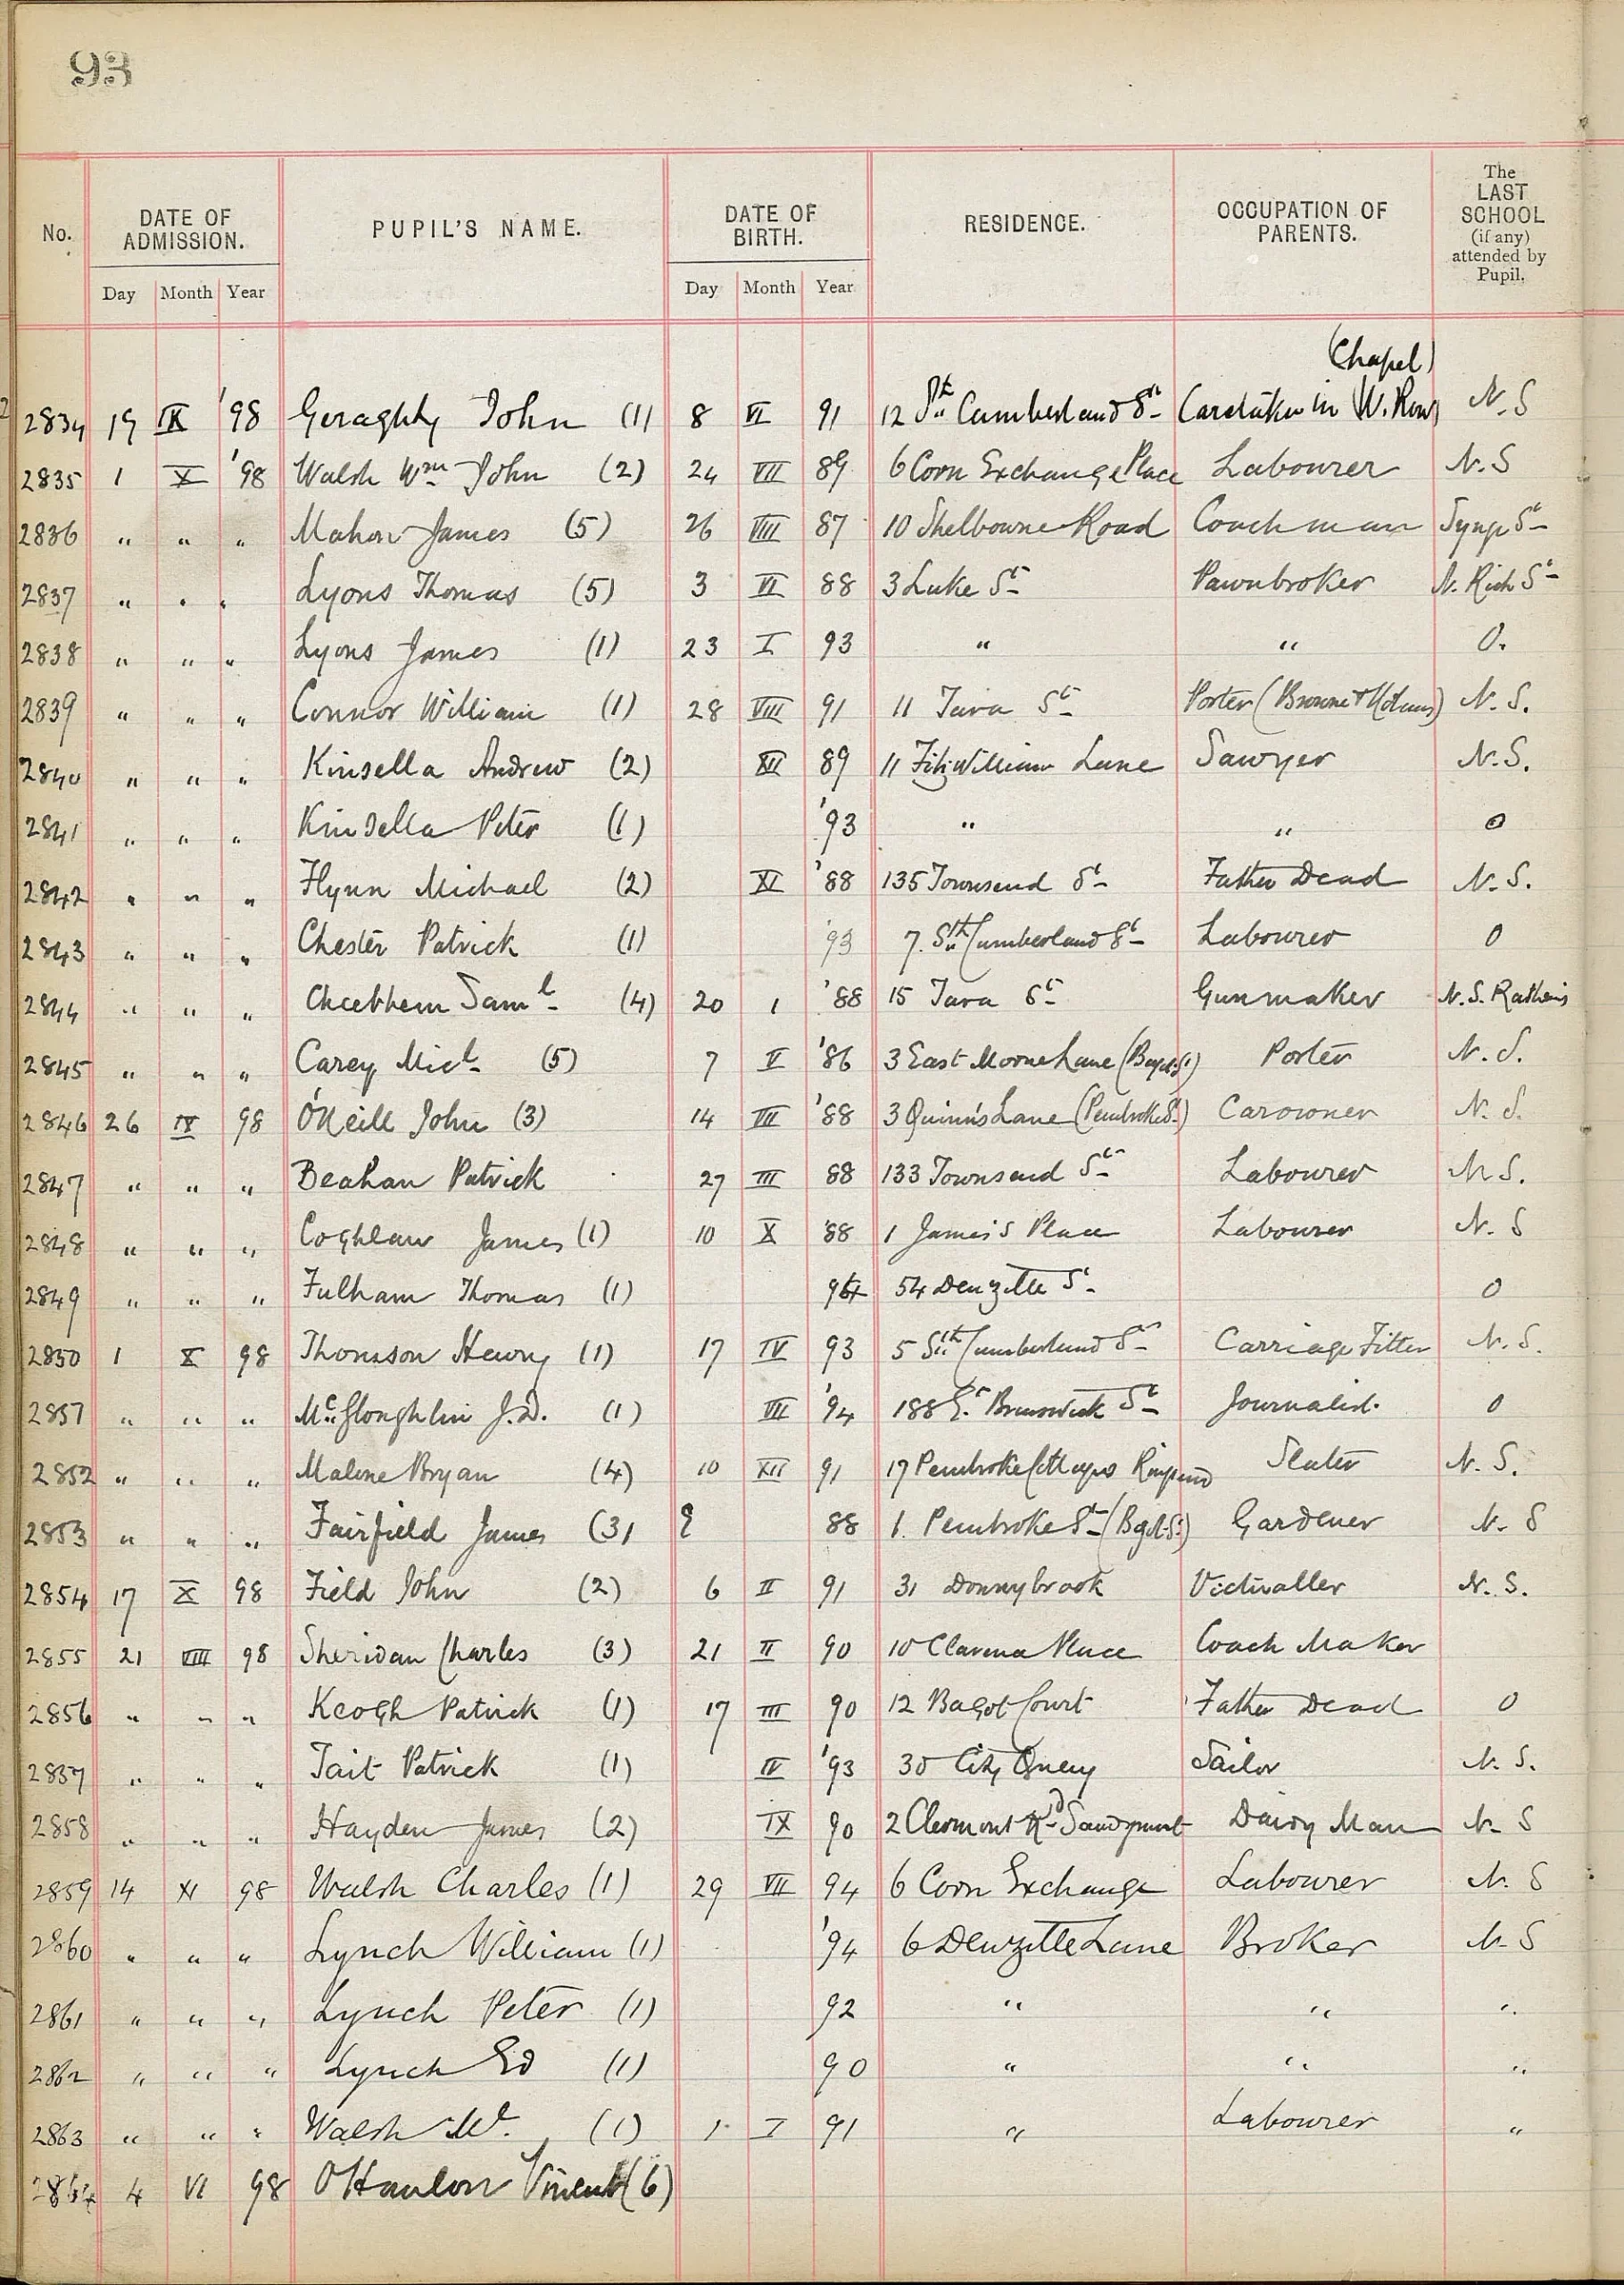 93
No. DATE OF ADMISSION. PUPIL'S NAME. DATE OF BIRTH. RESIDENCE. OCCUPATION OF PARENTS. The LAST SCHOOL (if any) attended by Pupil.
Day Month Year Day Month Year
(Chapel)
2834 19 IX '98 Geraghty John (1) 8 VI 91 12 Sth Cumberland St Caretaker in W. Row N. S
2835 1 X '98 Walsh Wm John (2) 24 VII 89 6 Corn Exchange Place Labourer N. S
2836 " " " Mahon James (5) 26 VIII 87 10 Shelbourne Road Coachman Synge St
2837 " " " Lyons Thomas (5) 3 VI 88 3 Luke St Pawnbroker N. Rich St
2838 " " " Lyons James (1) 23 I 93 " " 0.
2839 " " " Connor William (1) 28 VIII 91 11 Tara St Porter (Browne + Nolans) N. S.
2840 " " " Kinsella Andrew (2) XII 89 11 Fitzwilliam Lane Sawyer N. S.
2841 " " " Kinsella Peter (1) '93 " " 0
2842 " " " Flynn Michael (2) XI '88 135 Townsend St Father Dead N. S.
2843 " " " Chester Patrick (1) '93 7. Sth Cumberland St Labourer 0
2844 " " " Cheethem Saml (4) 20 1 '88 15 Tara St Gunmaker N. S.
2845 " " " Carey Micl (5) 7 V '86 3 East Moore Lane Porter N. S.
2846 26 IX 98 O'Neill John (3) 14 VII '88 3 Quinn's Lane (Pembroke St) Carowner N. S.
2847 " " " Beahan Patrick 27 III 88 133 Townsend St Labourer N S.
2848 " " " Coghlan James (1) 10 X '88 1 James's Place Labourer N. S
2849 " " " Fulham Thomas (1) 54 Denzille St 0
2850 1 X 98 Thomson Henry (1) 17 IV 93 5 Sth Cumberland St Carriage Fitter N. S.
2851 " " " McGloughlin J. D. (1) VII '94 188 Gt Brunswick St Journalist. 0
2852 " " " Malone Bryan (4) 10 XII 91 17 Pembroke Cottages Ringsend Slater N. S.
2853 " " " Fairfield James (3) 88 1. Pembroke St (Bgot St) Gardener N. S
2854 17 X 98 Field John (2) 6 II 91 31 Donnybrook Victualler N. S.
2855 21 VIII 98 Sheridan Charles (3) 21 II 90 10 Clarence Place Coach Maker
2856 " " " Keogh Patrick (1) 17 III 90 12 Bagot Court Father Dead 0
2857 " " " Tait Patrick (1) IV '93 30 City Quay Sailor N. S.
2858 " " " Hayden James (2) IX 90 2 Clermont Rd Sandymount Dairy Man N. S
2859 14 XI 98 Walsh Charles (1) 29 VII 94 6 Corn Exchange Labourer N. S
2860 " " " Lynch William (1) '94 6 Denzille Lane Broker N. S
2861 " " " Lynch Peter (1) 92 " " "
2862 " " " Lynch Ed (1) 90 " " "
2863 " " " Walsh Ml. (1) 1 I 91 " Labourer "
2864 4 VI 98 O'Hanlon Vincent (6)